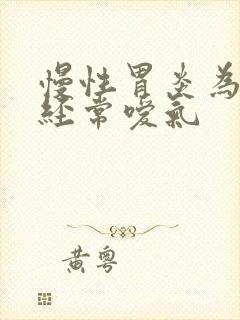 慢性胃炎為
經常噯氣
黃粵